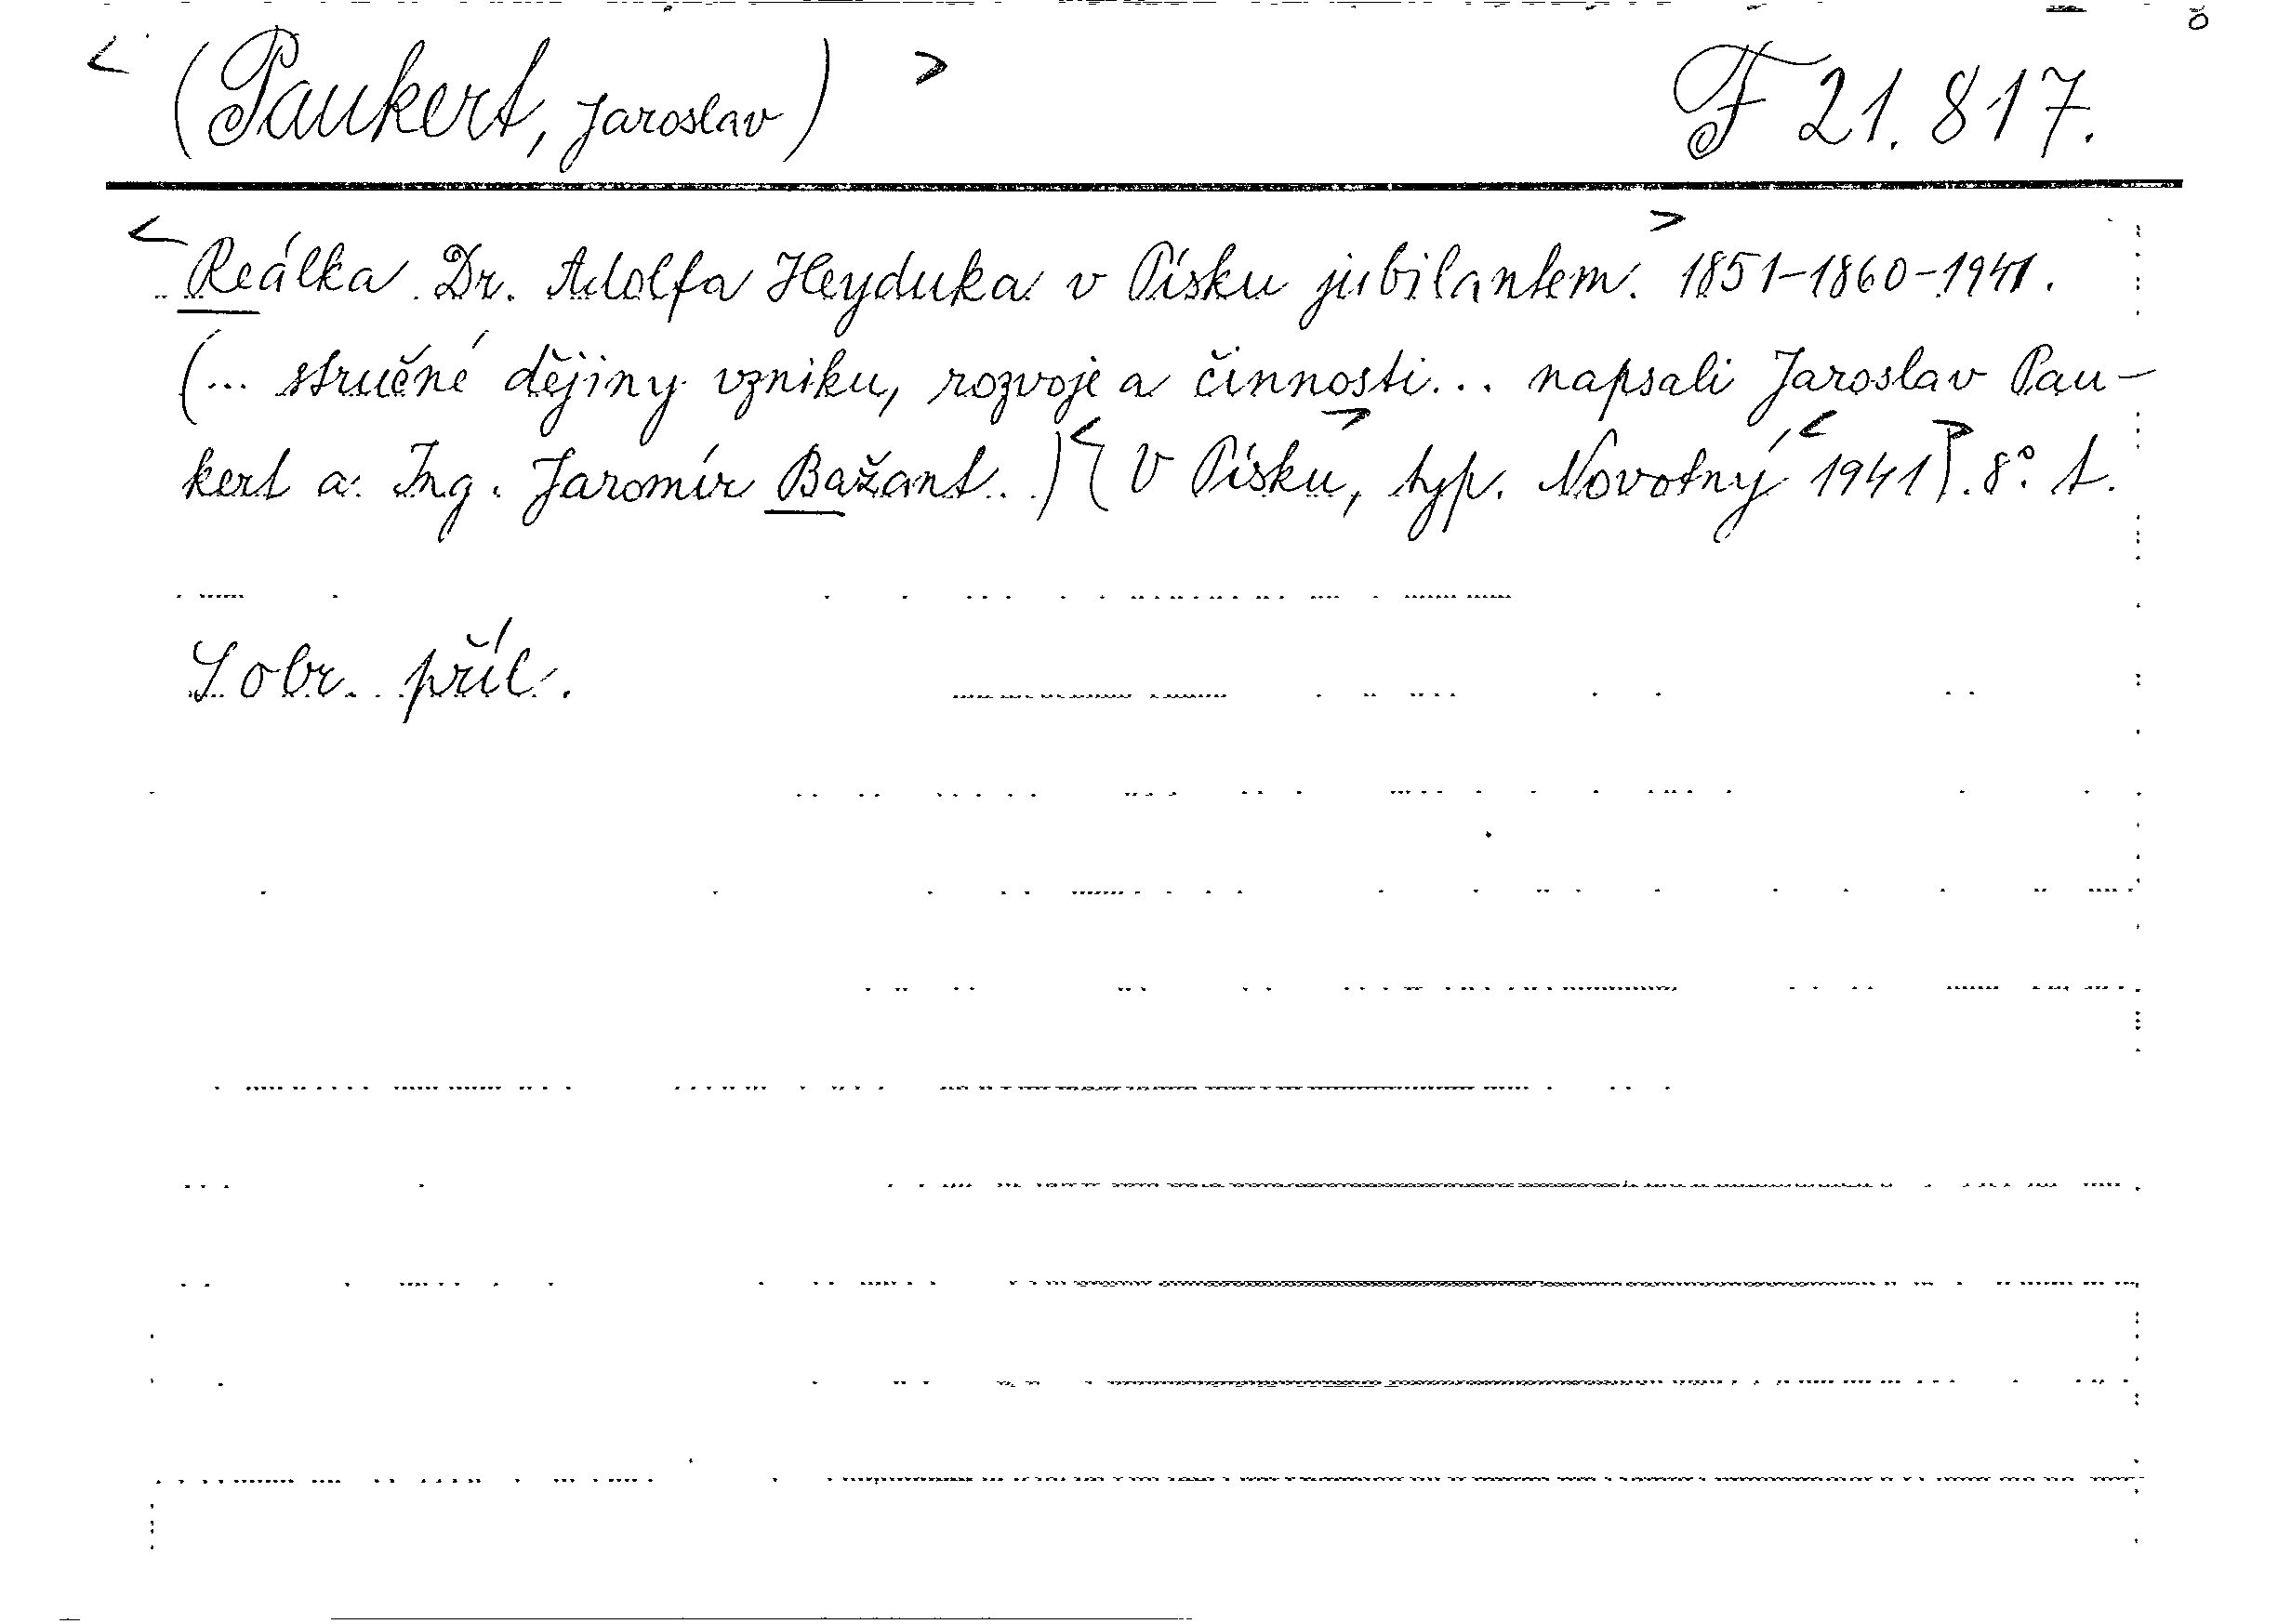 < (Paukert, Jaroslav) > F 21.817.
< Reálka Dr. Adolfa Heyduka v Písku jubilantem. > 1851-1860-1941.
(... stručné dějiny vzniku, rozvoje a činnosti... napsali Jaroslav Pau-
kert a Ing. Jaromír Bažant..) < (V Písku, > typ. Novotný < 1941) >. 8° t.
S obr. příl.